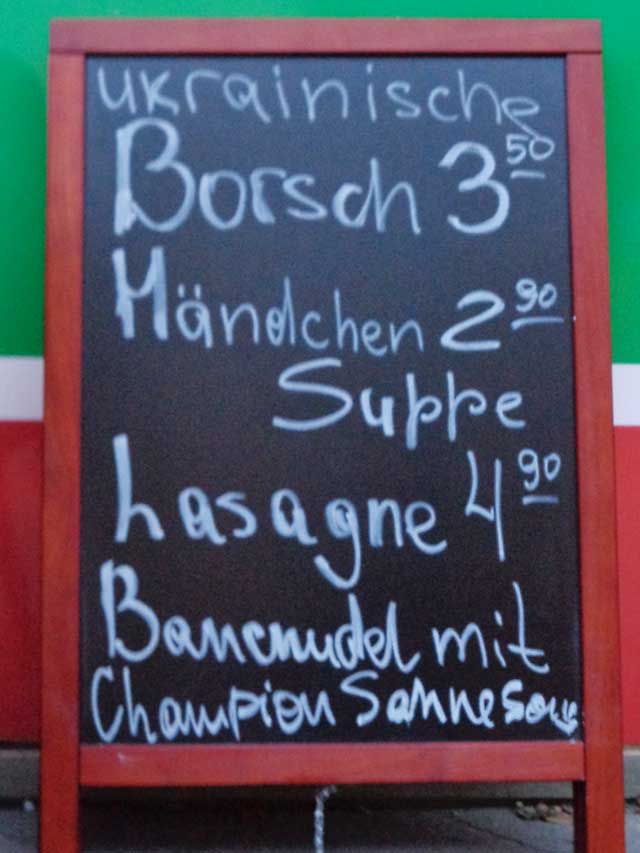 ukrainische
Borsch 3 50
Händchen 2 90
Suppe
Lasagne 4 90
Bancnudel mit
Champion Sahnesous